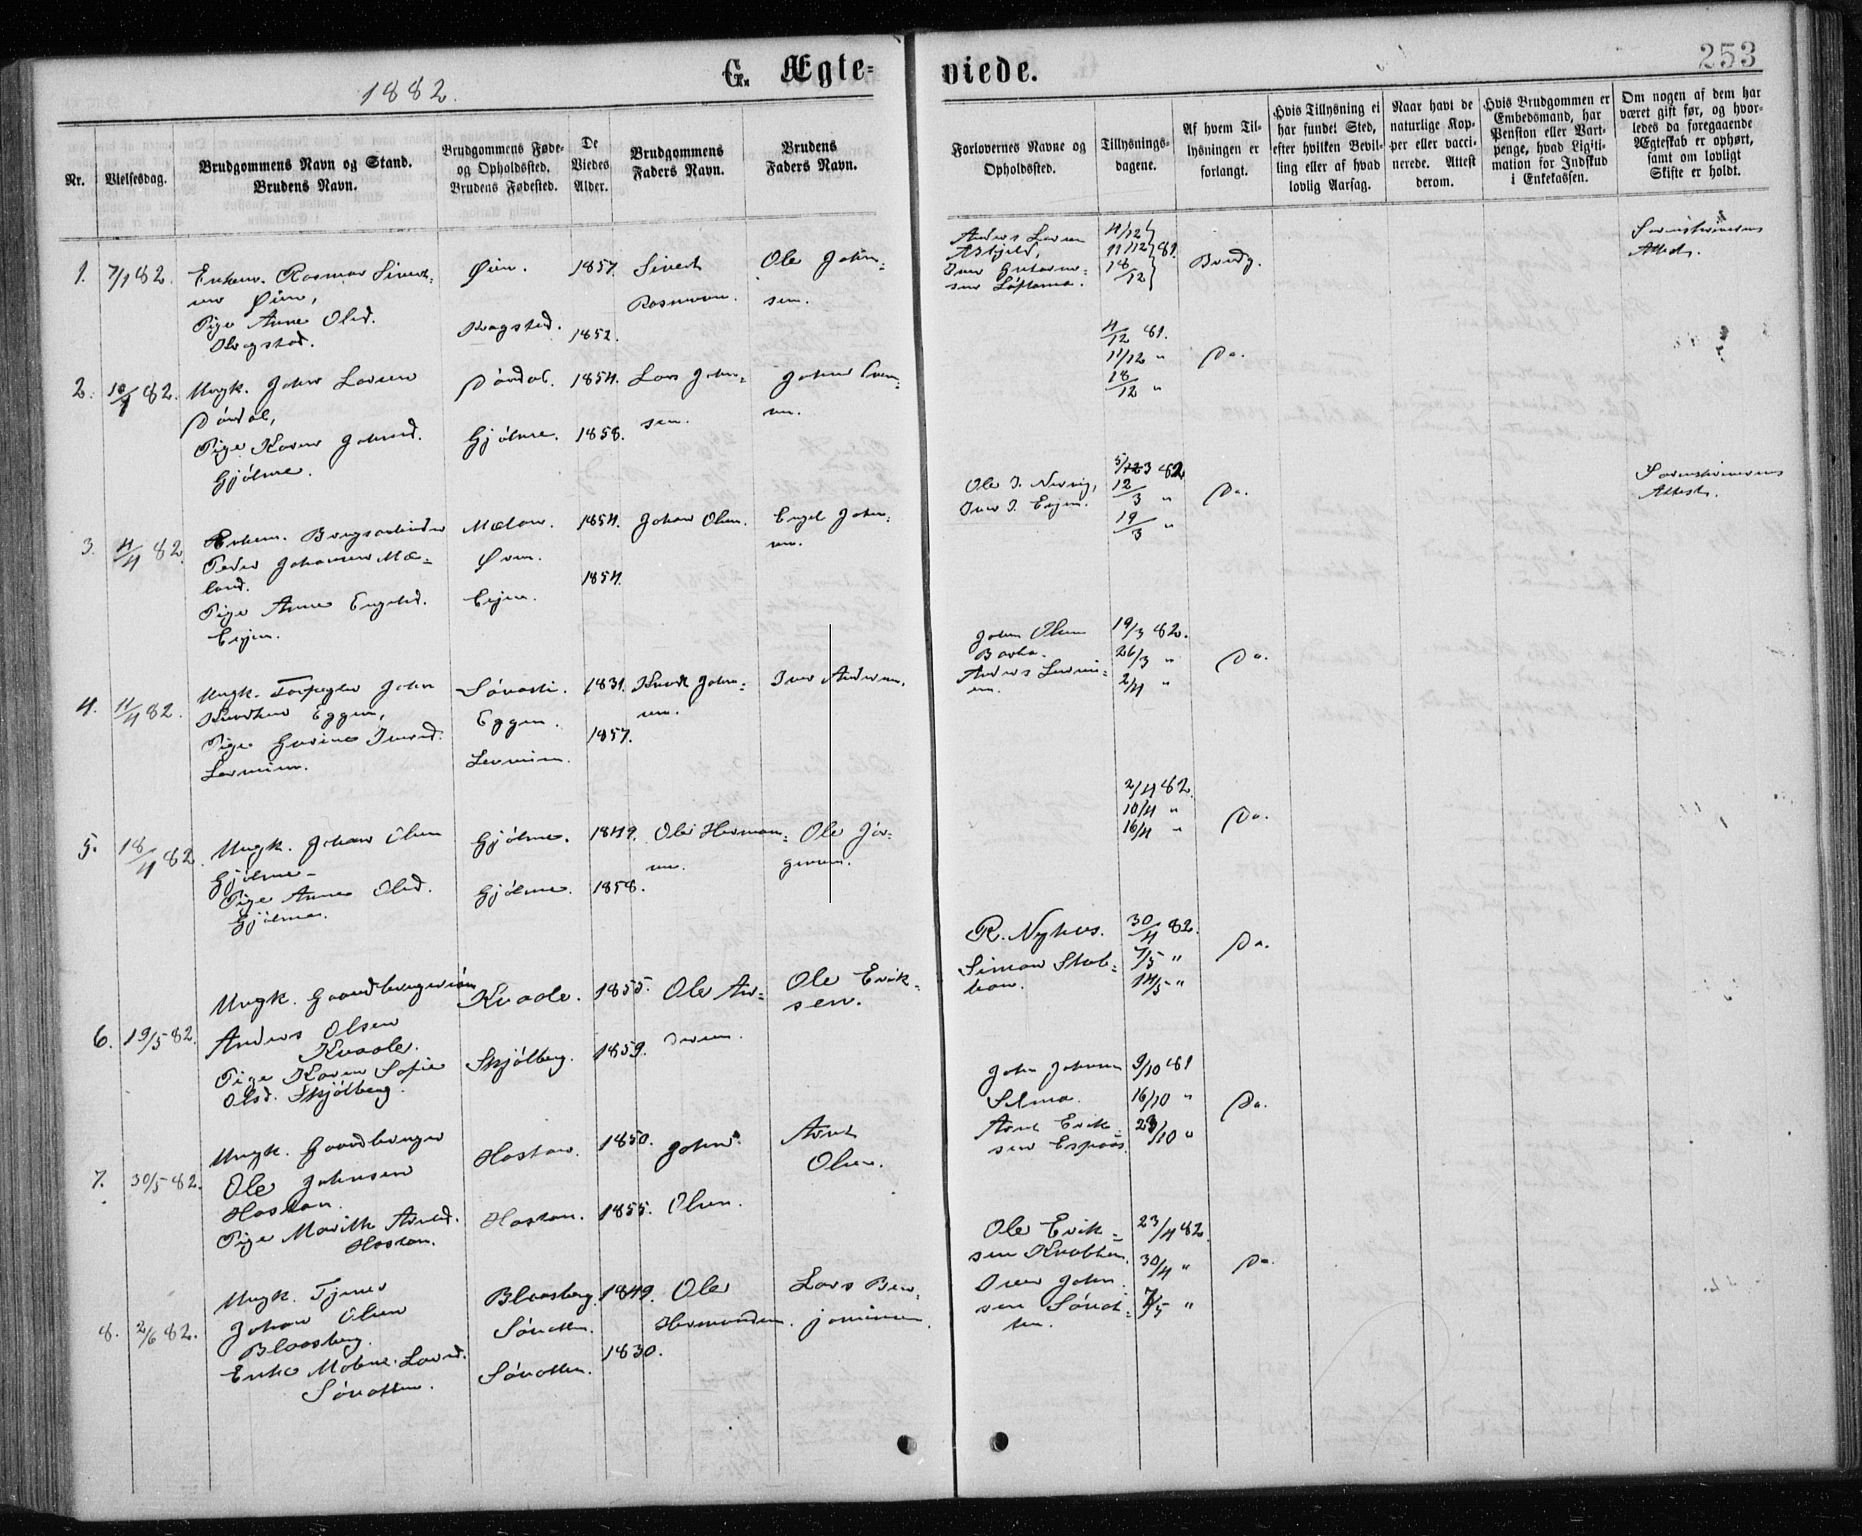 253
1882.
G. Ægte-
viede.
Nr.
Vielsesdag.
Brudgommens Navn og Stand.
Brudens Navn.
Brudgommens Føde-
og Opholdssted.
Brudens Fødested.
De
Viedes
Alder.
Brudgommens
Faders Navn.
Brudens
Faders Navn.
Forlovernes Navne og
Opholdssted.
Tillysnings-
dagene.
Af hvem Til-
lysningen er
forlangt.
Hvis Tillysning ei
har fundet Sted,
efter hvilken Bevil-
ling eller af hvad
lovlig Aarsag.
Naar havt de
naturlige Kop-
per eller vacci-
nerede. Attest
derom.
Hvis Brudgommen er
Embedsmand, har
Pension eller Vart-
penge, hvad Ligiti-
mation for Indskud
i Enkekassen.
Om nogen af dem har
været gift før, og hvor-
ledes da foregaaende
Ægteskab er ophørt,
samt om lovligt
Skifte er holdt.
1. 7/1 82.
Enkem. Rasmus Sivert-
sen Øien,
Pige Anne Olsd.
Øien.
1857.
1852.
Sivert
Ole John-
sen.
Anders Larsen
4/12
11/12 81.
18/12
Brudg.
Sorenskriverens
Attest.
2. 10/1 82.
Ungk. John Larsen
Pige Karen Johnsd.
Gjølme.
Gjølme.
1854.
1858.
Lars John-
sen.
4/12 81.
11/12 "
18/12 "
Do.
3. 4/4 82
Enkem.
Peder Johansen Mæ-
land.
Pige Anne Engelsd.
Mæland.
1854.
1854.
Johan Olsen.
Engel John-
sen.
82
12/3 "
19/3 "
Do.
Sorenskriverens
Attest.
4. 11/4 82.
Ungk.
John
Eggen,
Pige
Eggen.
1831.
1857.
Knudt John-
sen.
Iver Andersen.
John Olsen
19/3 82.
26/3 "
2/4 "
Do.
5. 18/4 82.
Ungk. Johan Olsen
Gjølme
Pige Anne Olsd.
Gjølme.
Gjølme.
Gjølme.
1849.
1858.
Ole Herman-
sen.
Ole Jør-
gensen.
2/4 82.
10/4 "
16/4 "
Do.
6. 19/5 82.
Ungk. Gaardbrugersøn
Anders Olsen
Kvaale.
Pige Karen Sofie
Olsd. Skjølberg.
Kvaale.
Skjølberg.
1855.
1859.
Ole An-
dersen.
Ole Erik-
sen.
R. Nyhus.
30/4 82.
7/5 "
14/5 "
Do.
7. 30/5 82.
Ungk. Gaardbruger
Ole Johnsen
Hoston.
Pige Marith Arntsd.
Hoston.
Hoston.
Hoston.
1850.
1855.
John
Olsen.
Arnt
Olsen.
John Johnsen
Arnt Erik-
sen Espaas.
9/10 81
16/10 "
23/10 "
Do.
8. 2/6 82.
Ungk. Tjener
Johan Olsen
Blaasberg.
Enke Malene Larsd.
Søvatten.
Blaasberg.
Søvatten.
Søvatten.
1849.
1830.
Ole
Hermandsen.
Lars Ben-
jaminsen.
Ole Erik-
sen
Iver John-
sen Søvat-
ten.
23/4 82.
30/4 "
7/5 "
Do.